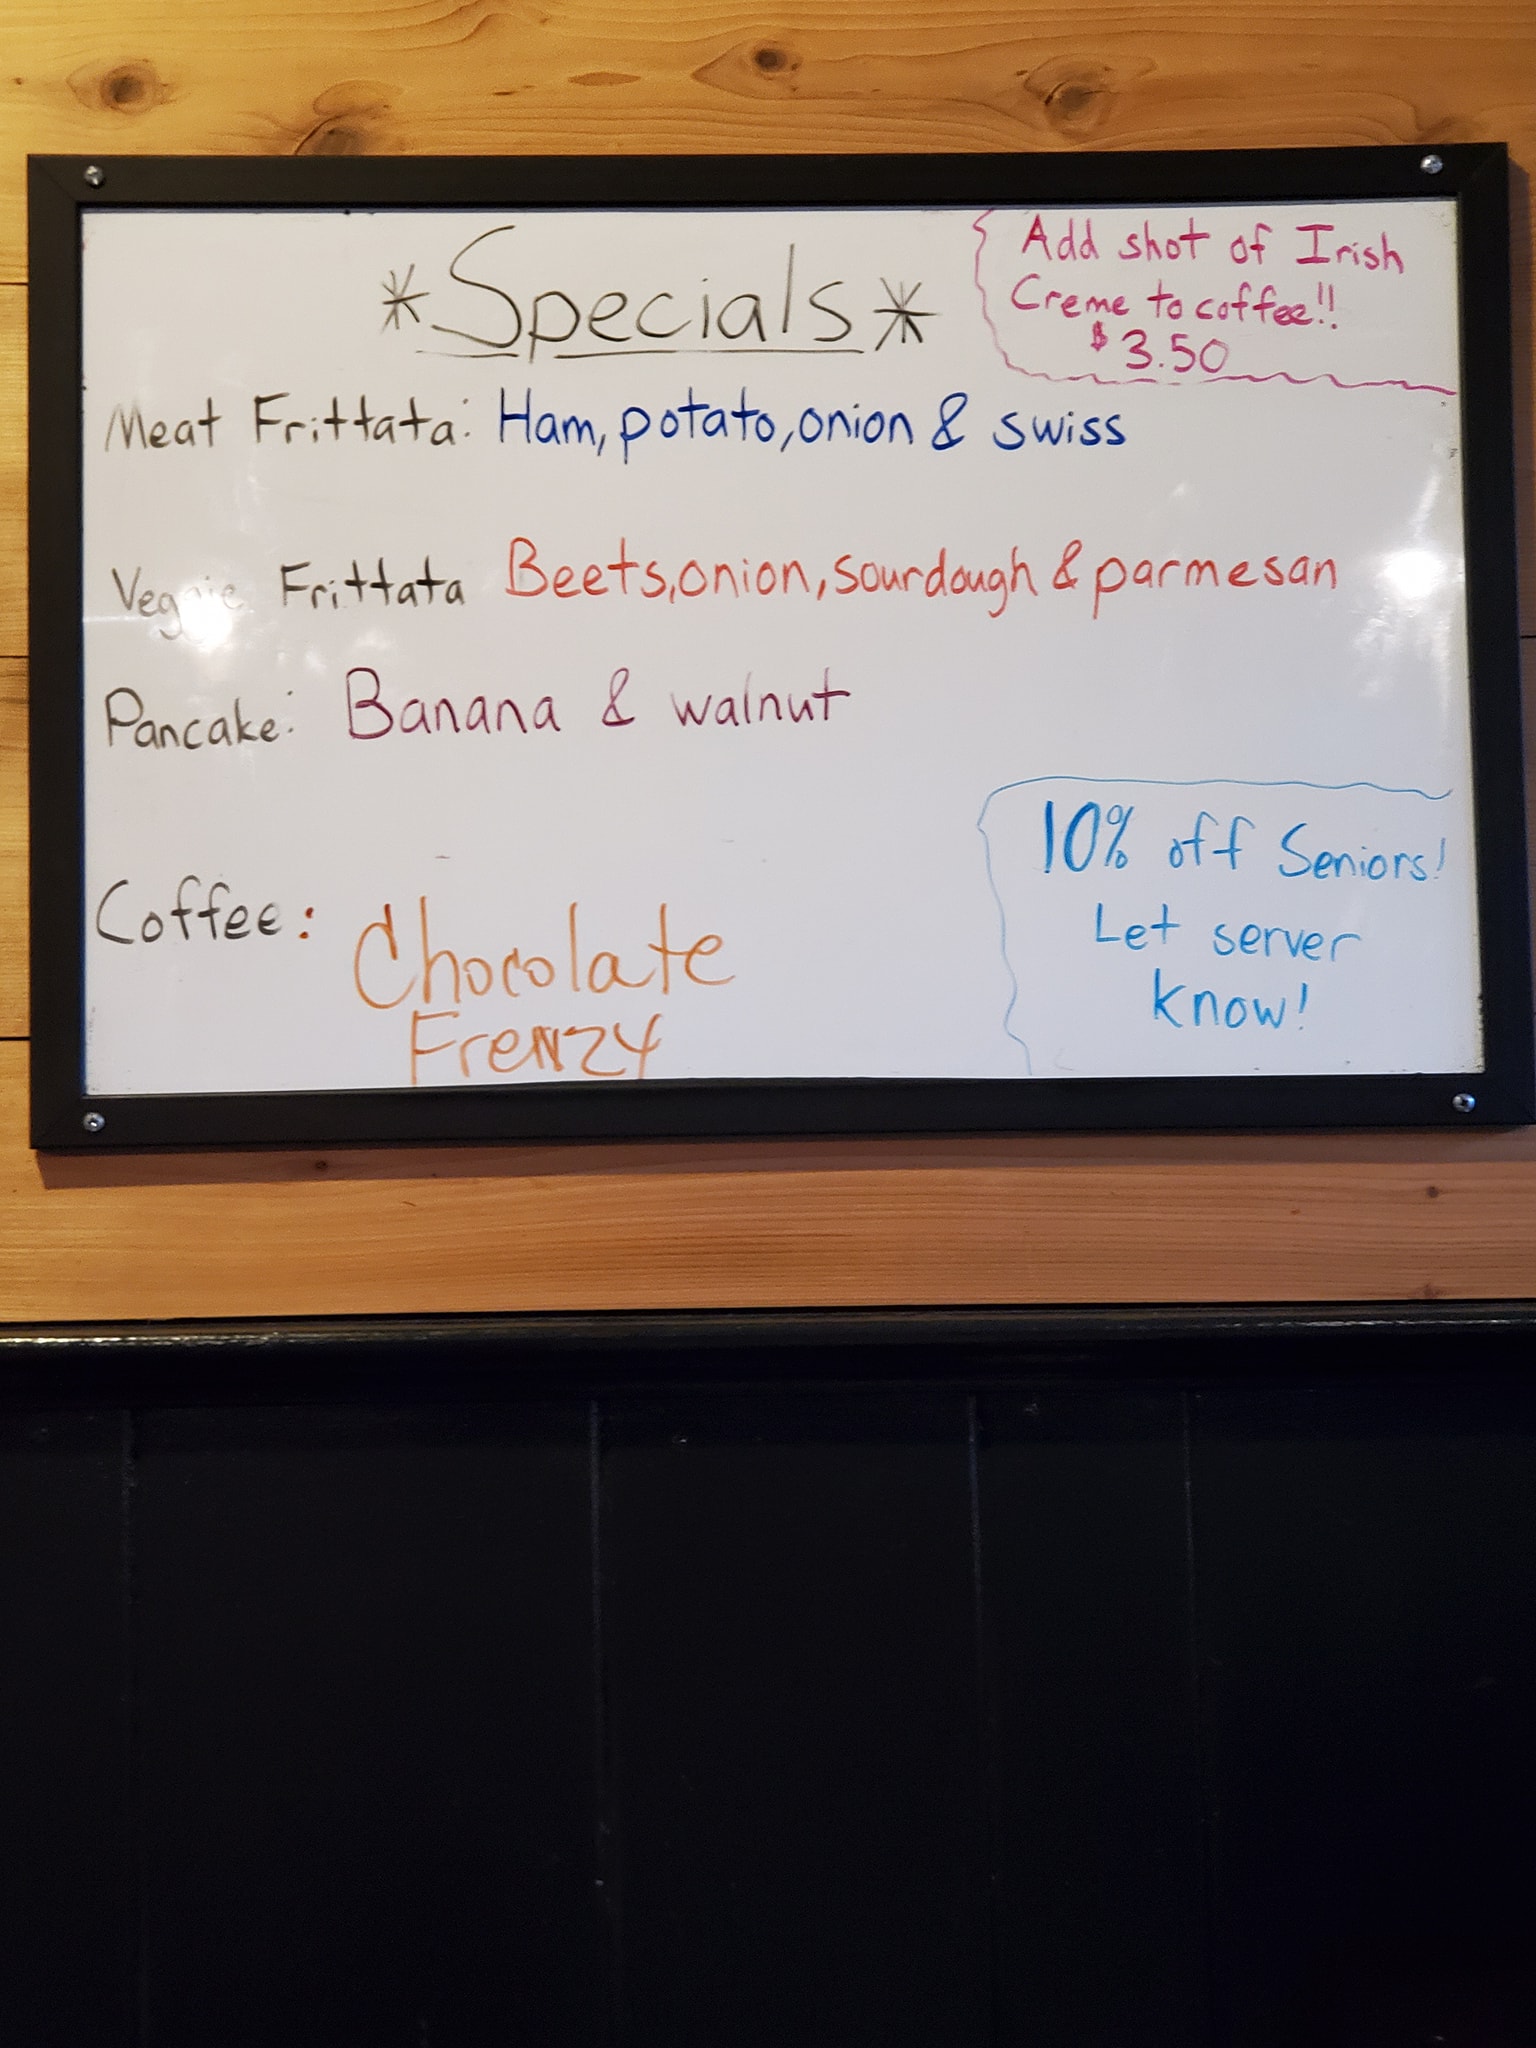 *Specials*
Add shot of Irish
Creme to coffee!!
$3.50
Meat Frittata: Ham, potato, onion & swiss
Veggie Frittata Beets, onion, sourdough & parmesan
Pancake: Banana & walnut
Coffee: Chocolate
Frenzy
10% off Seniors!
Let server
know!